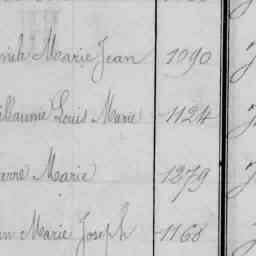 Marie Jean 1090
Guillaume Louis Marie 1124
Pierre Marie 1279
Marie Joseph 1168